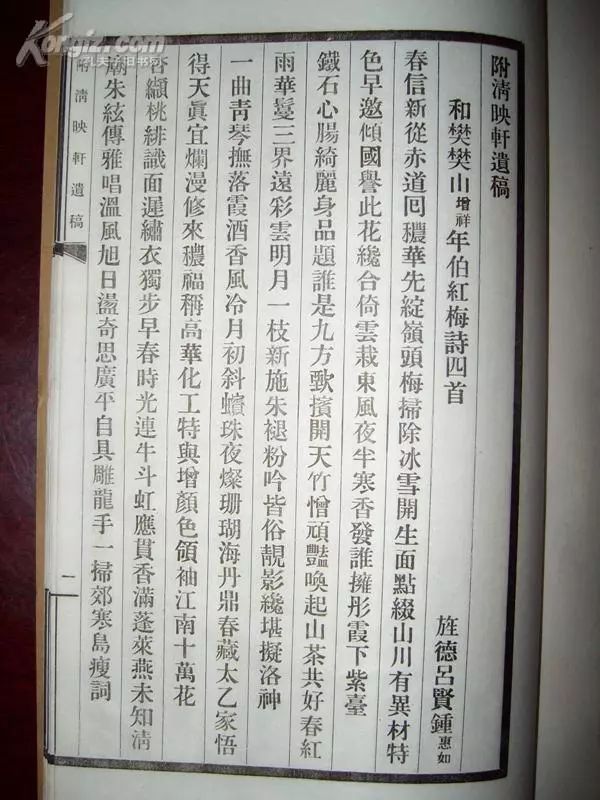 附淸映軒遺稿
和樊樊山增祥年伯紅梅詩四首 旌德呂賢鍾惠如
春信新從赤道囘穠華先綻嶺頭梅掃除冰雪開生面點綴山川有異材特
色早邀傾國譽此花纔合倚雲栽東風夜半寒香發誰擁彤霞下紫臺
鐵石心腸綺麗身品題誰是九方歅擯開天竹憎頑豔喚起山茶共好春紅
雨華鬘三界遠彩雲明月一枝新施朱褪粉吟皆俗靚影纔堪擬洛神
一曲靑琴撫落霞酒香風冷月初斜蠙珠夜燦珊瑚海丹鼎春藏太乙家悟
得天眞宜爛漫修來穠福稱高華化工特與增顏色領袖江南十萬花
杏纈桃緋識面遲繡衣獨步早春時光連牛斗虹應貫香滿蓬萊燕未知淸
廟朱絃傳雅唱溫風旭日盪奇思廣平自具雕龍手一掃郊寒島瘦詞
附淸映軒遺稿
一
Kongfz.com
孔夫子旧书网